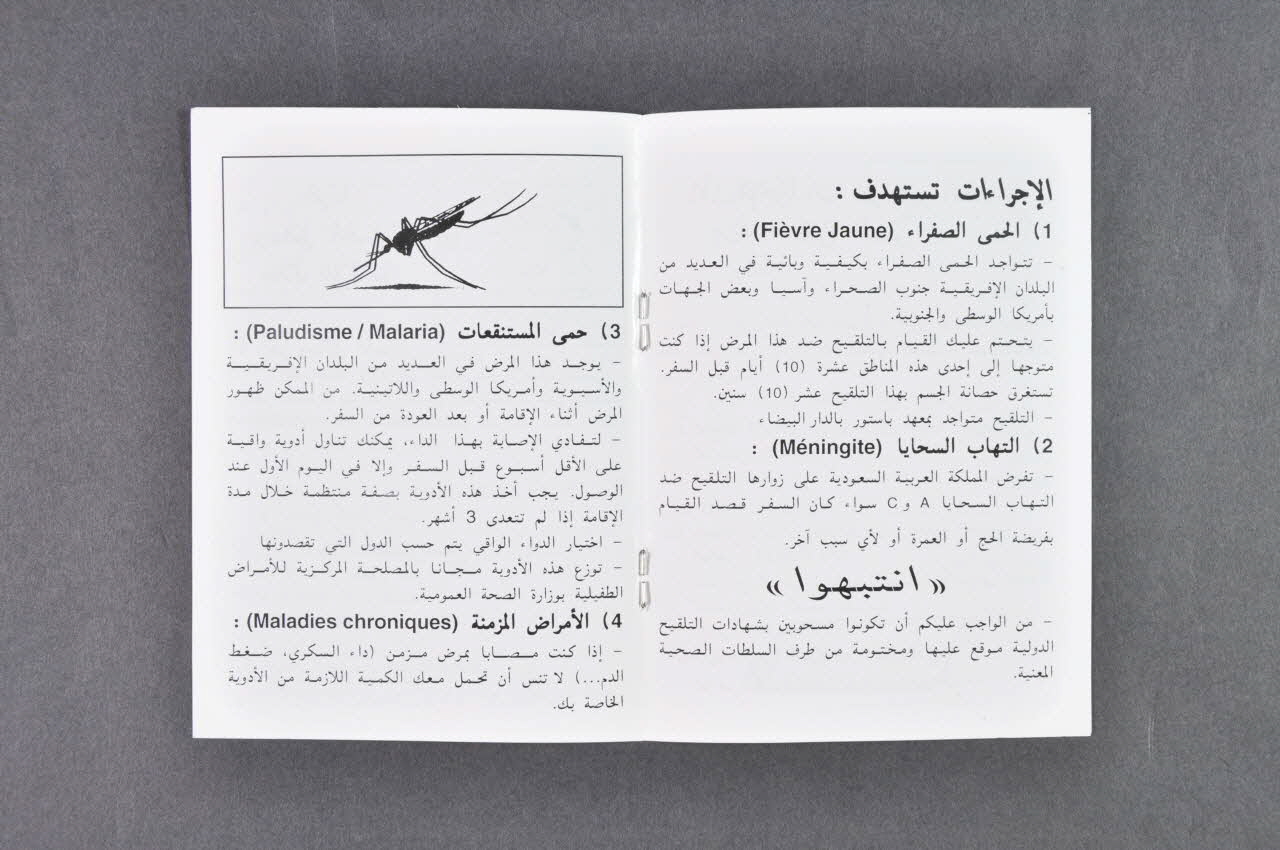 الإجراءات تستهدف :
1) الحمى الصفراء (Fièvre Jaune) :
- تتواجد الحمى الصفراء بكيفية وبائية في العديد من
البلدان الإفريقية جنوب الصحراء وآسيا وبعض الجهات
بأمريكا الوسطى والجنوبية.
- يتحتم عليك القيام بالتلقيح ضد هذا المرض إذا كنت
متوجها إلى إحدى هذه المناطق عشرة (10) أيام قبل السفر.
تستغرق حصانة الجسم بهذا التلقيح عشر (10) سنين.
- التلقيح متواجد بمعهد باستور بالدار البيضاء
2) التهاب السحايا (Méningite) :
- تفرض المملكة العربية السعودية على زوارها التلقيح ضد
التهاب السحايا A و C سواء كان السفر قصد القيام
بفريضة الحج أو العمرة أو لأي سبب آخر.
« انتبهوا »
- من الواجب عليكم أن تكونوا مسحوبين بشهادات التلقيح
الدولية موقع عليها ومختومة من طرف السلطات الصحية
المعنية.
3) حمى المستنقعات (Paludisme / Malaria) :
- يوجد هذا المرض في العديد من البلدان الإفريقية
والأسيوية وأمريكا الوسطى واللاتينية. من الممكن ظهور
المرض أثناء الإقامة أو بعد العودة من السفر.
- لتفادي الإصابة بهذا الداء، يمكنك تناول أدوية واقية
على الأقل أسبوع قبل السفر وإلا في اليوم الأول عند
الوصول. يجب أخذ هذه الأدوية بصفة منتظمة خلال مدة
الإقامة إذا لم تتعدى 3 أشهر.
- اختيار الدواء الواقي يتم حسب الدول التي تقصدونها
- توزع هذه الأدوية مجانا بالمصلحة المركزية للأمراض
الطفيلية بوزارة الصحة العمومية.
4) الأمراض المزمنة (Maladies chroniques) :
- إذا كنت مصابا بمرض مزمن (داء السكري، ضغط
الدم...) لا تنس أن تحمل معك الكمية اللازمة من الأدوية
الخاصة بك.